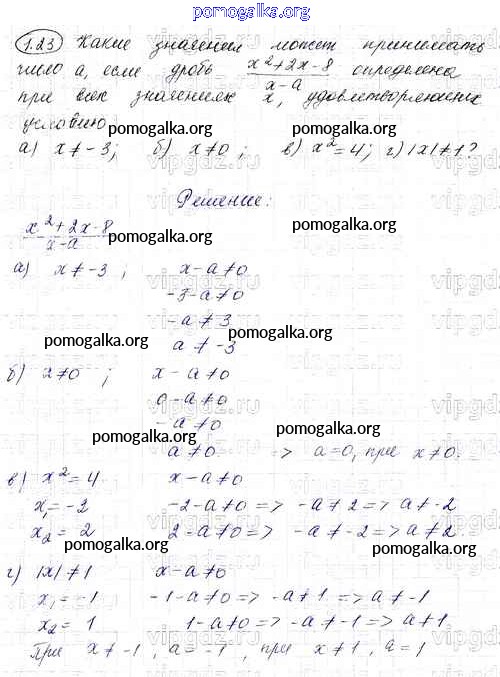 pomogalka.org
1.23 Какие значения может принимать
число а, если дробь x²+2x-8 / x-a определена
при всех значениях x, удовлетворяющих
условию:
pomogalka.org pomogalka.org
а) x≠-3; б) x≠0; в) x²=4; г) |x|≠1?
Решение:
x²+2x-8 / x-a
pomogalka.org pomogalka.org
а) x≠-3; x-a≠0
-3-a≠0
-a≠3
pomogalka.org pomogalka.org
a≠-3
б) x≠0; x-a≠0
0-a≠0
-a≠0
pomogalka.org pomogalka.org
a≠0 => a=0, при x≠0.
в) x²=4 x-a≠0
x₁=-2 -2-a≠0 => -a≠2 => a≠-2
x₂=2 2-a≠0 => -a≠-2 => a≠2
pomogalka.org pomogalka.org
г) |x|≠1 x-a≠0
x₁=-1 -1-a≠0 => -a≠1 => a≠-1
x₂=1 1-a≠0 => -a≠-1 => a≠1
При x≠-1, a=-1, при x≠1, a=1